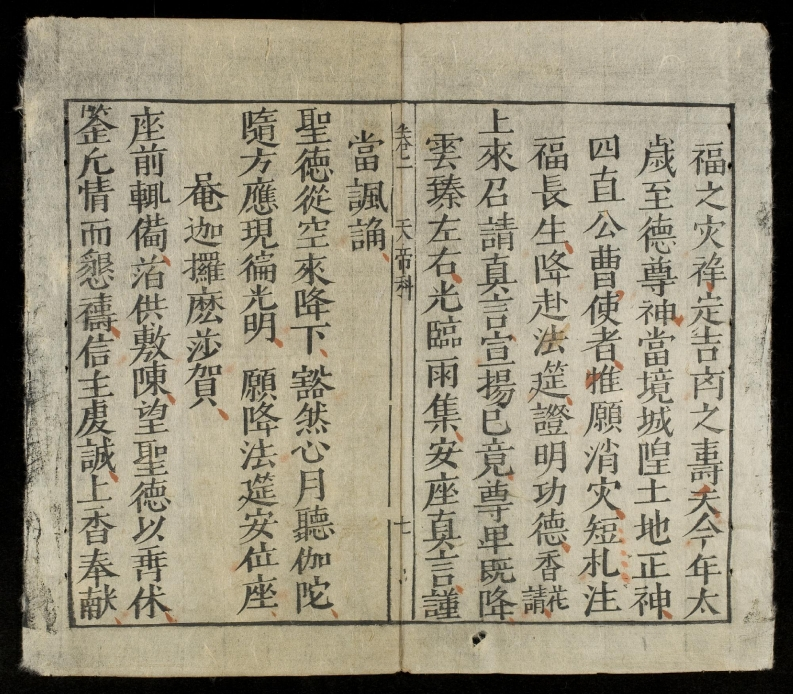 福之灾祥定吉㐫之壽夭今年太
歲至德尊神當境城隍土地正神
四直公曹使者惟願消灾短札注
福長生降赴法筵證明功德香花請
上來召請真言宣揚已竟尊卑既降
雲臻左右光臨雨集安座真言謹
卷一 天帝科 七
當諷誦
聖德從空來降下豁然心月聽伽陀
隨方應現徧光明 願降法筵安位座
唵迦攞麽莎賀
座前輒備萡供敷陳望聖德以垂休
鉴允情而懇禱信主虔誠上香奉献